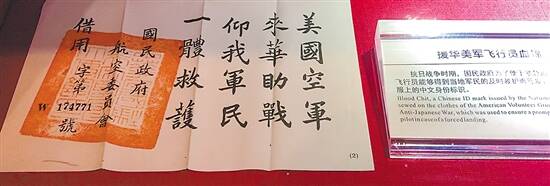 美國空軍
來華助戰
仰我軍民
一體救護
國民政府
航空委員會
借用 字第
W 174771 號
(2)
援华美军飞行员血
抗日战争时期，国民政府为了便于
飞行员能够得到当地军民的及时救护
服上的中文身份标识。
Blood Chit, a Chinese ID mark issued by the
sewed on the clothes of the American Volunteer
Anti-Japanese War, which was used to ensure a
pilot in case of a forced landing.